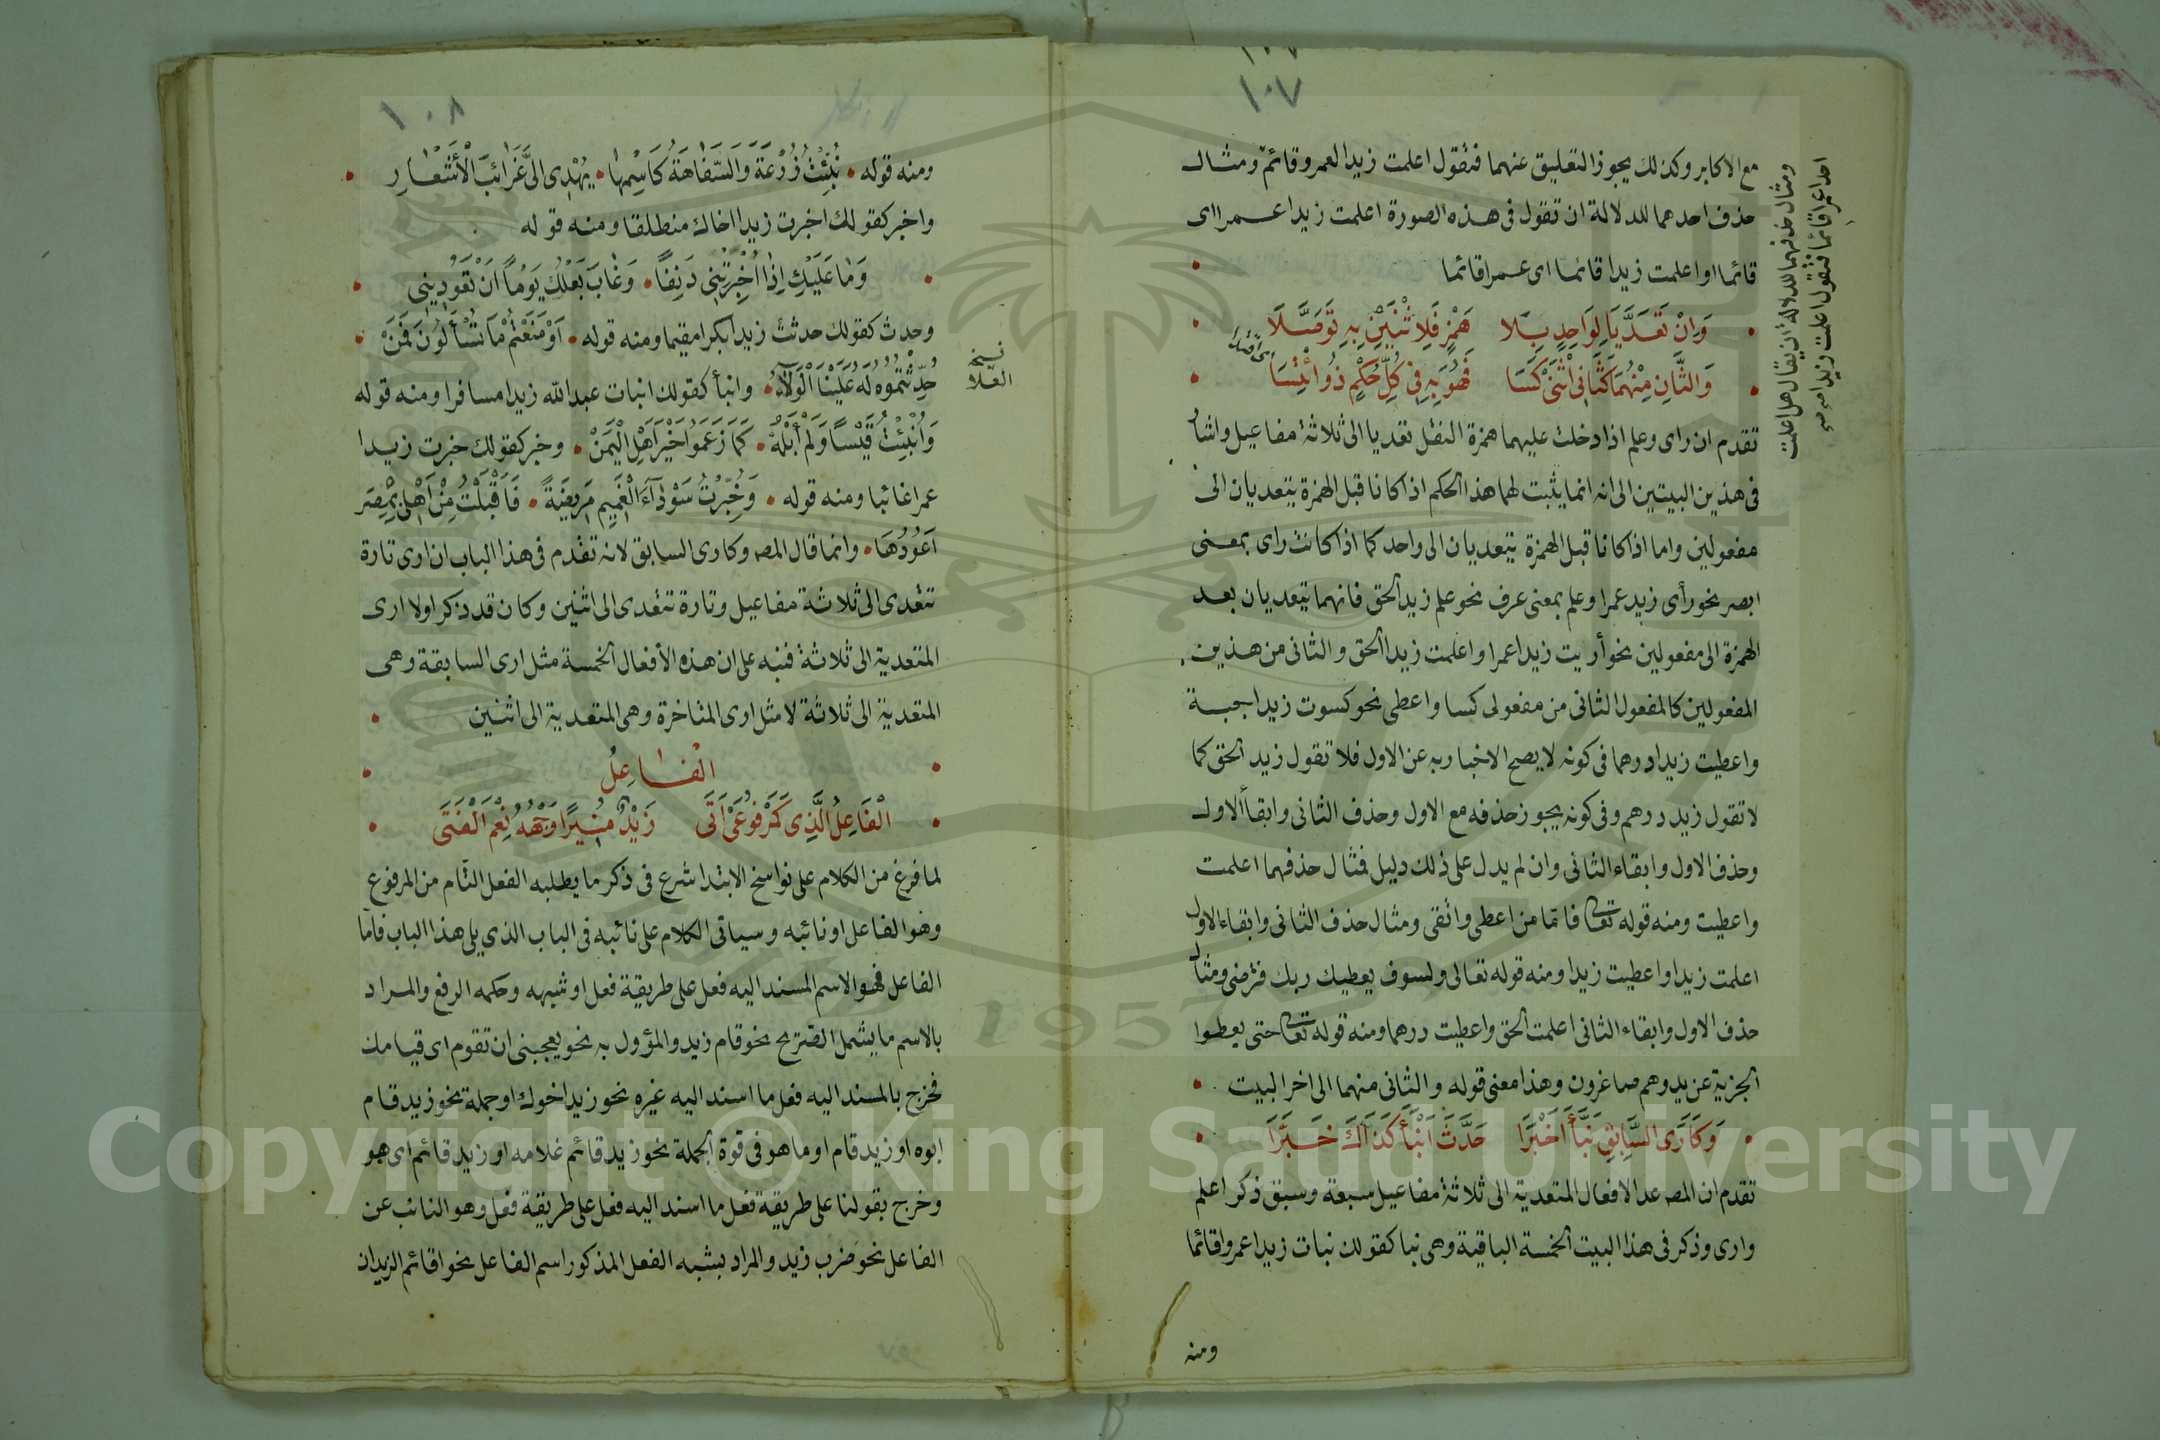 ١٠٧
مع الاكابر وكذلك يجوز التعليق عنهما فتقول اعلمت زيدا لعمرو قائم ومثال
حذف احدهما للدلالة ان تقول فى هذه الصورة اعلمت زيدا عمرا اى
قائما او اعلمت زيدا قائما اى عمرا قائما
وَاِنْ تَعَدَّيَا لِوَاحِدٍ بِلا هَمْزٍ فَلِاثْنَيْنِ بِهِ تَوَصَّلَا
وَالثَّانِ مِنْهُمَا كَثَانِى اثْنَىْ كَسَا فَهْوَ بِهِ فِى كُلِّ حُكْمٍ ذُو ائْتِسَا
تقدم ان راى وعلم اذا دخلت عليهما همزة النقل تعديا الى ثلاثة مفاعيل واشار
فى هذين البيتين الى انه انما يثبت لهما هذا الحكم اذا كانا قبل الهمزة يتعديان الى
مفعولين واما اذا كانا قبل الهمزة يتعديان الى واحد كما اذا كانت راى بمعنى
ابصر نحو رأى زيد عمرا وعلم بمعنى عرف نحو علم زيد الحق فانهما يتعديان بعد
الهمزة الى مفعولين نحو أريت زيدا عمرا واعلمت زيدا الحق والثانى من هذين
المفعولين كالمفعول الثانى من مفعولى كسا واعطى نحو كسوت زيدا جبة
واعطيت زيدا درهما فى كونه لا يصح الاخبار به عن الاول فلا تقول زيد الحق كما
لا تقول زيد درهم وفى كونه يجوز حذفه مع الاول وحذف الثانى وابقأ الاول
وحذف الاول وابقاء الثانى وان لم يدل على ذلك دليل فمثال حذفهما اعلمت
واعطيت ومنه قوله تعا فاما من اعطى واتقى ومثال حذف الثانى وابقاء الاول
اعلمت زيدا واعطيت زيدا ومنه قوله تعالى ولسوف يعطيك ربك فترضى ومثال
حذف الاول وابقاء الثانى اعلمت الحق واعطيت درهما ومنه قوله تعا حتى يعطوا
الجزية عن يد وهم صاغرون وهذا معنى قوله والثانى منهما الى اخر البيت
وَكَاَرَى السَّابِقِ نَبَّأَ اَخْبَرَا حَدَّثَ اَنْبَأَ كَذَاكَ خَبَّرَا
تقدم ان المصه عد الافعال المتعدية الى ثلاثة مفاعيل سبعة وسبق ذكر اعلم
وارى وذكر فى هذا البيت الخمسة الباقية وهى نبا كقولك نبات زيدا عمروا قائما
ومنه
ومثال حذفهما للدلالة ان يقال هل اعلمت
احدا عمرا قائما فتقول اعلمت زيدا
١٠٨
ومنه قوله نُبِّئْتُ زُرْعَةَ وَالسَّفَاهَةُ كَاسْمِهَا يُهْدِى اِلَىَّ غَرَائِبَ الْأَشْعَارِ
واخبر كقولك اخبرت زيدا اخاك منطلقا ومنه قوله
وَمَا عَلَيْكِ اِذَا اُخْبِرْتِنِى دَنِفًا وَغَابَ بَعْلُكِ يَوْمًا اَنْ تَعُودِينِى
وحدث كقولك حدثت زيدا بكرا مقيما ومنه قوله اَوْ مَنَعْتُمْ مَا تُسْأَلُونَ فَمَنْ
حُدِّثْتُمُوهُ لَهُ عَلَيْنَا الْوَلَآءُ وانبأ كقولك انبات عبد الله زيدا مسافرا ومنه قوله
نسخ
العلا
وَاُنْبِئْتُ قَيْسًا وَلَمْ أَبْلُهُ كَمَا زَعَمُوا خَيْرَ اَهْلِ الْيَمَنْ وخبر كقولك خبرت زيدا
عمرا غائبا ومنه قوله وَخُبِّرْتُ سَوْدَآءَ الْغَمِيمِ مَرِيضَةً فَاَقْبَلْتُ مِنْ اَهْلِى بِمِصْرَ
اَعُودُهَا وانما قال المصه وكارى السابق لانه تقدم فى هذا الباب ان ارى تارة
تتعدى الى ثلاثة مفاعيل وتارة تتعدى الى اثنين وكان قد ذكر اولا ارى
المتعدية الى ثلاثة فنبه على ان هذه الأفعال الخمسة مثل ارى السابقة وهى
المتعدية الى ثلاثة لا مثل ارى المتاخرة وهى المتعدية الى اثنين
الفاعِلُ
الْفَاعِلُ الَّذِى كَمَرْفُوعَىْ اَتَى زَيْدٌ مُنِيرًا وَجْهُهُ نِعْمَ الْفَتَى
لما فرغ من الكلام على نواسخ الابتدا شرع فى ذكر ما يطلبه الفعل التام من المرفوع
وهو الفاعل او نائبه وسياتى الكلام على نائبه فى الباب الذى يلى هذا الباب فاما
الفاعل فهو الاسم المسند اليه فعل على طريقة فعل او شبهه وحكمه الرفع والمراد
بالاسم ما يشمل الصريح نحو قام زيد والمؤول به نحو يعجبنى ان تقوم اى قيامك
فخرج بالمسند اليه فعل ما اسند اليه غيره نحو زيد اخوك او جملة نحو زيد قام
ابوه او زيد قام او ما هو فى قوة الجملة نحو زيد قائم غلامه او زيد قائم اى هو
وخرج بقولنا على طريقة فعل ما اسند اليه فعل على طريقة فعل وهو النائب عن
الفاعل نحو ضرب زيد والمراد بشبه الفعل المذكور اسم الفاعل نحو اقائم الزيدان
1957
Copyright © King Saud University